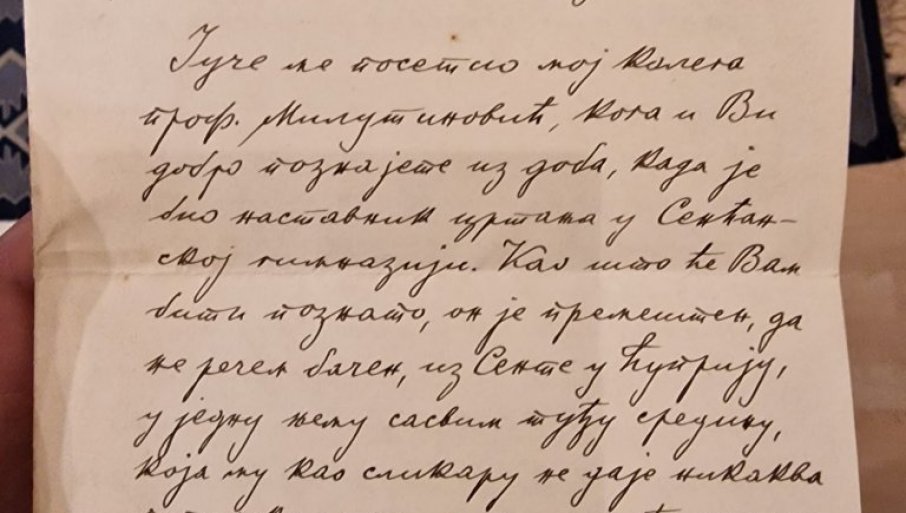 Јуче ме посетио мој колега
проф. Милутиновић, кога и Ви
добро познајете из доба, када је
био наставник цртања у Сенћан-
ској гимназији. Као што ће Вам
бити познато, он је премештен, да
не речем бачен, из Сенте у Ћуприју,
у једну њему сасвим туђу средину,
која му као сликару не даје никаква